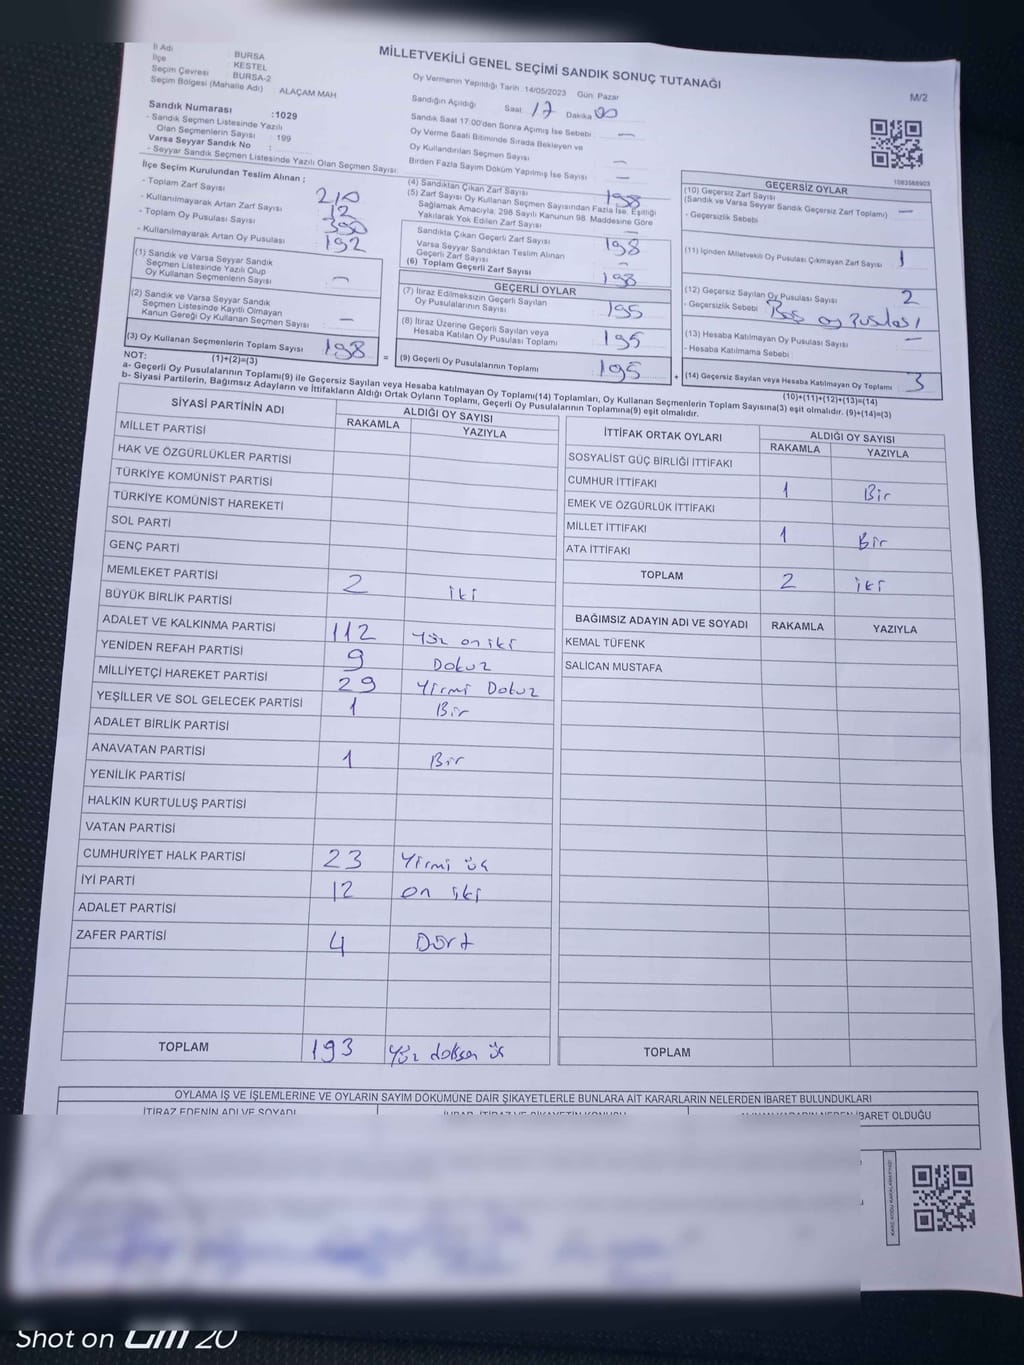 MİLLETVEKİLİ GENEL SEÇİMİ SANDIK SONUÇ TUTANAĞI
M/2
İl Adı : BURSA
İlçe : KESTEL
Seçim Çevresi : BURSA-2
Seçim Bölgesi (Mahalle Adı) : ALAÇAM MAH
Sandık Numarası :1029
- Sandık Seçmen Listesinde Yazılı
Olan Seçmenlerin Sayısı : 199
Varsa Seyyar Sandık No :
- Seyyar Sandık Seçmen Listesinde Yazılı Olan Seçmen Sayısı:
Oy Vermenin Yapıldığı Tarih :14/05/2023 Gün: Pazar
Sandığın Açıldığı Saat: 17 Dakika 00
Sandık Saat 17:00'den Sonra Açımış İse Sebebi —
Oy Verme Saati Bitiminde Sırada Bekleyen ve
Oy Kullandırılan Seçmen Sayısı —
Birden Fazla Sayım Döküm Yapılmış İse Sayısı —
İlçe Seçim Kurulundan Teslim Alınan :
- Toplam Zarf Sayısı 210
- Kullanılmayarak Artan Zarf Sayısı 12
- Toplam Oy Pusulası Sayısı
- Kullanılmayarak Artan Oy Pusulası 192
(1) Sandık ve Varsa Seyyar Sandık
Seçmen Listesinde Yazılı Olup
Oy Kullanan Seçmenlerin Sayısı —
(2) Sandık ve Varsa Seyyar Sandık
Seçmen Listesinde Kayıtlı Olmayan
Kanun Gereği Oy Kullanan Seçmen Sayısı —
(3) Oy Kullanan Seçmenlerin Toplam Sayısı 198
(1)+(2)=(3)
(4) Sandıktan Çıkan Zarf Sayısı 198
(5) Zarf Sayısı Oy Kullanan Seçmen Sayısından Fazla İse, Eşitliği
Sağlamak Amacıyla, 298 Sayılı Kanunun 98. Maddesine Göre
Yakılarak Yok Edilen Zarf Sayısı —
Sandıkta Çıkan Geçerli Zarf Sayısı 198
Varsa Seyyar Sandıktan Teslim Alınan
Geçerli Zarf Sayısı —
(6) Toplam Geçerli Zarf Sayısı 198
GEÇERLİ OYLAR
(7) İtiraz Edilmeksizin Geçerli Sayılan
Oy Pusulalarının Sayısı 195
(8) İtiraz Üzerine Geçerli Sayılan veya
Hesaba Katılan Oy Pusulası Toplamı 195
= (9) Geçerli Oy Pusulalarının Toplamı 195 +
1083568903
GEÇERSİZ OYLAR
(10) Geçersiz Zarf Sayısı
(Sandık ve Varsa Seyyar Sandık Geçersiz Zarf Toplamı) —
- Geçersizlik Sebebi
(11) İçinden Milletvekili Oy Pusulası Çıkmayan Zarf Sayısı 1
(12) Geçersiz Sayılan Oy Pusulası Sayısı 2
- Geçersizlik Sebebi : Boş oy pusulası
(13) Hesaba Katılmayan Oy Pusulası Sayısı —
- Hesaba Katılmama Sebebi :
(14) Geçersiz Sayılan veya Hesaba Katılmayan Oy Toplamı 3
(10)+(11)+(12)+(13)=(14)
NOT:
a- Geçerli Oy Pusulalarının Toplamı(9) ile Geçersiz Sayılan veya Hesaba katılmayan Oy Toplamı(14) Toplamları, Oy Kullanan Seçmenlerin Toplam Sayısına(3) eşit olmalıdır. (9)+(14)=(3)
b- Siyasi Partilerin, Bağımsız Adayların ve İttifakların Aldığı Ortak Oyların Toplamı, Geçerli Oy Pusulalarının Toplamına(9) eşit olmalıdır.
SİYASİ PARTİNİN ADI ALDIĞI OY SAYISI
RAKAMLA YAZIYLA
MİLLET PARTİSİ
HAK VE ÖZGÜRLÜKLER PARTİSİ
TÜRKİYE KOMÜNİST PARTİSİ
TÜRKİYE KOMÜNİST HAREKETİ
SOL PARTİ
GENÇ PARTİ
MEMLEKET PARTİSİ 2 iki
BÜYÜK BİRLİK PARTİSİ
ADALET VE KALKINMA PARTİSİ 112 Yüz on iki
YENİDEN REFAH PARTİSİ 9 Dokuz
MİLLİYETÇİ HAREKET PARTİSİ 29 Yirmi Dokuz
YEŞİLLER VE SOL GELECEK PARTİSİ 1 Bir
ADALET BİRLİK PARTİSİ
ANAVATAN PARTİSİ 1 Bir
YENİLİK PARTİSİ
HALKIN KURTULUŞ PARTİSİ
VATAN PARTİSİ
CUMHURİYET HALK PARTİSİ 23 Yirmi üç
İYİ PARTİ 12 on iki
ADALET PARTİSİ
ZAFER PARTİSİ 4 Dört
TOPLAM 193 Yüz doksan üç
İTTİFAK ORTAK OYLARI ALDIĞI OY SAYISI
RAKAMLA YAZIYLA
SOSYALİST GÜÇ BİRLİĞİ İTTİFAKI
CUMHUR İTTİFAKI 1 Bir
EMEK VE ÖZGÜRLÜK İTTİFAKI
MİLLET İTTİFAKI 1 Bir
ATA İTTİFAKI
TOPLAM 2 iki
BAĞIMSIZ ADAYIN ADI VE SOYADI RAKAMLA YAZIYLA
KEMAL TÜFENK
SALİCAN MUSTAFA
TOPLAM
OYLAMA İŞ VE İŞLEMLERİNE VE OYLARIN SAYIM DÖKÜMÜNE DAİR ŞİKAYETLERLE BUNLARA AİT KARARLARIN NELERDEN İBARET BULUNDUKLARI
İTİRAZ EDENİN ADI VE SOYADI
İBARET OLDUĞU
Shot on GM 20